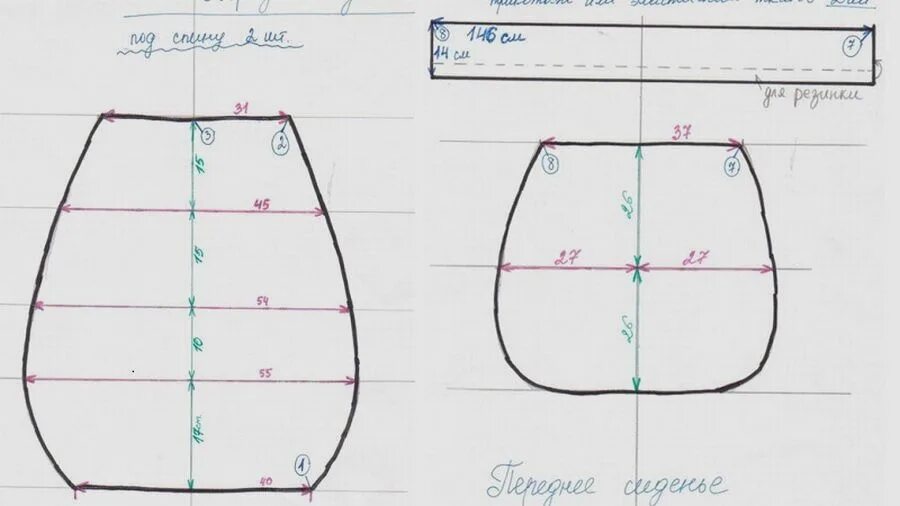 под спину 2 шт.
31
3
2
15
45
15
54
10
55
17см
1
40
8
146 см
7
14 см
для резинки
37
8
7
26
27
27
26
Переднее сиденье